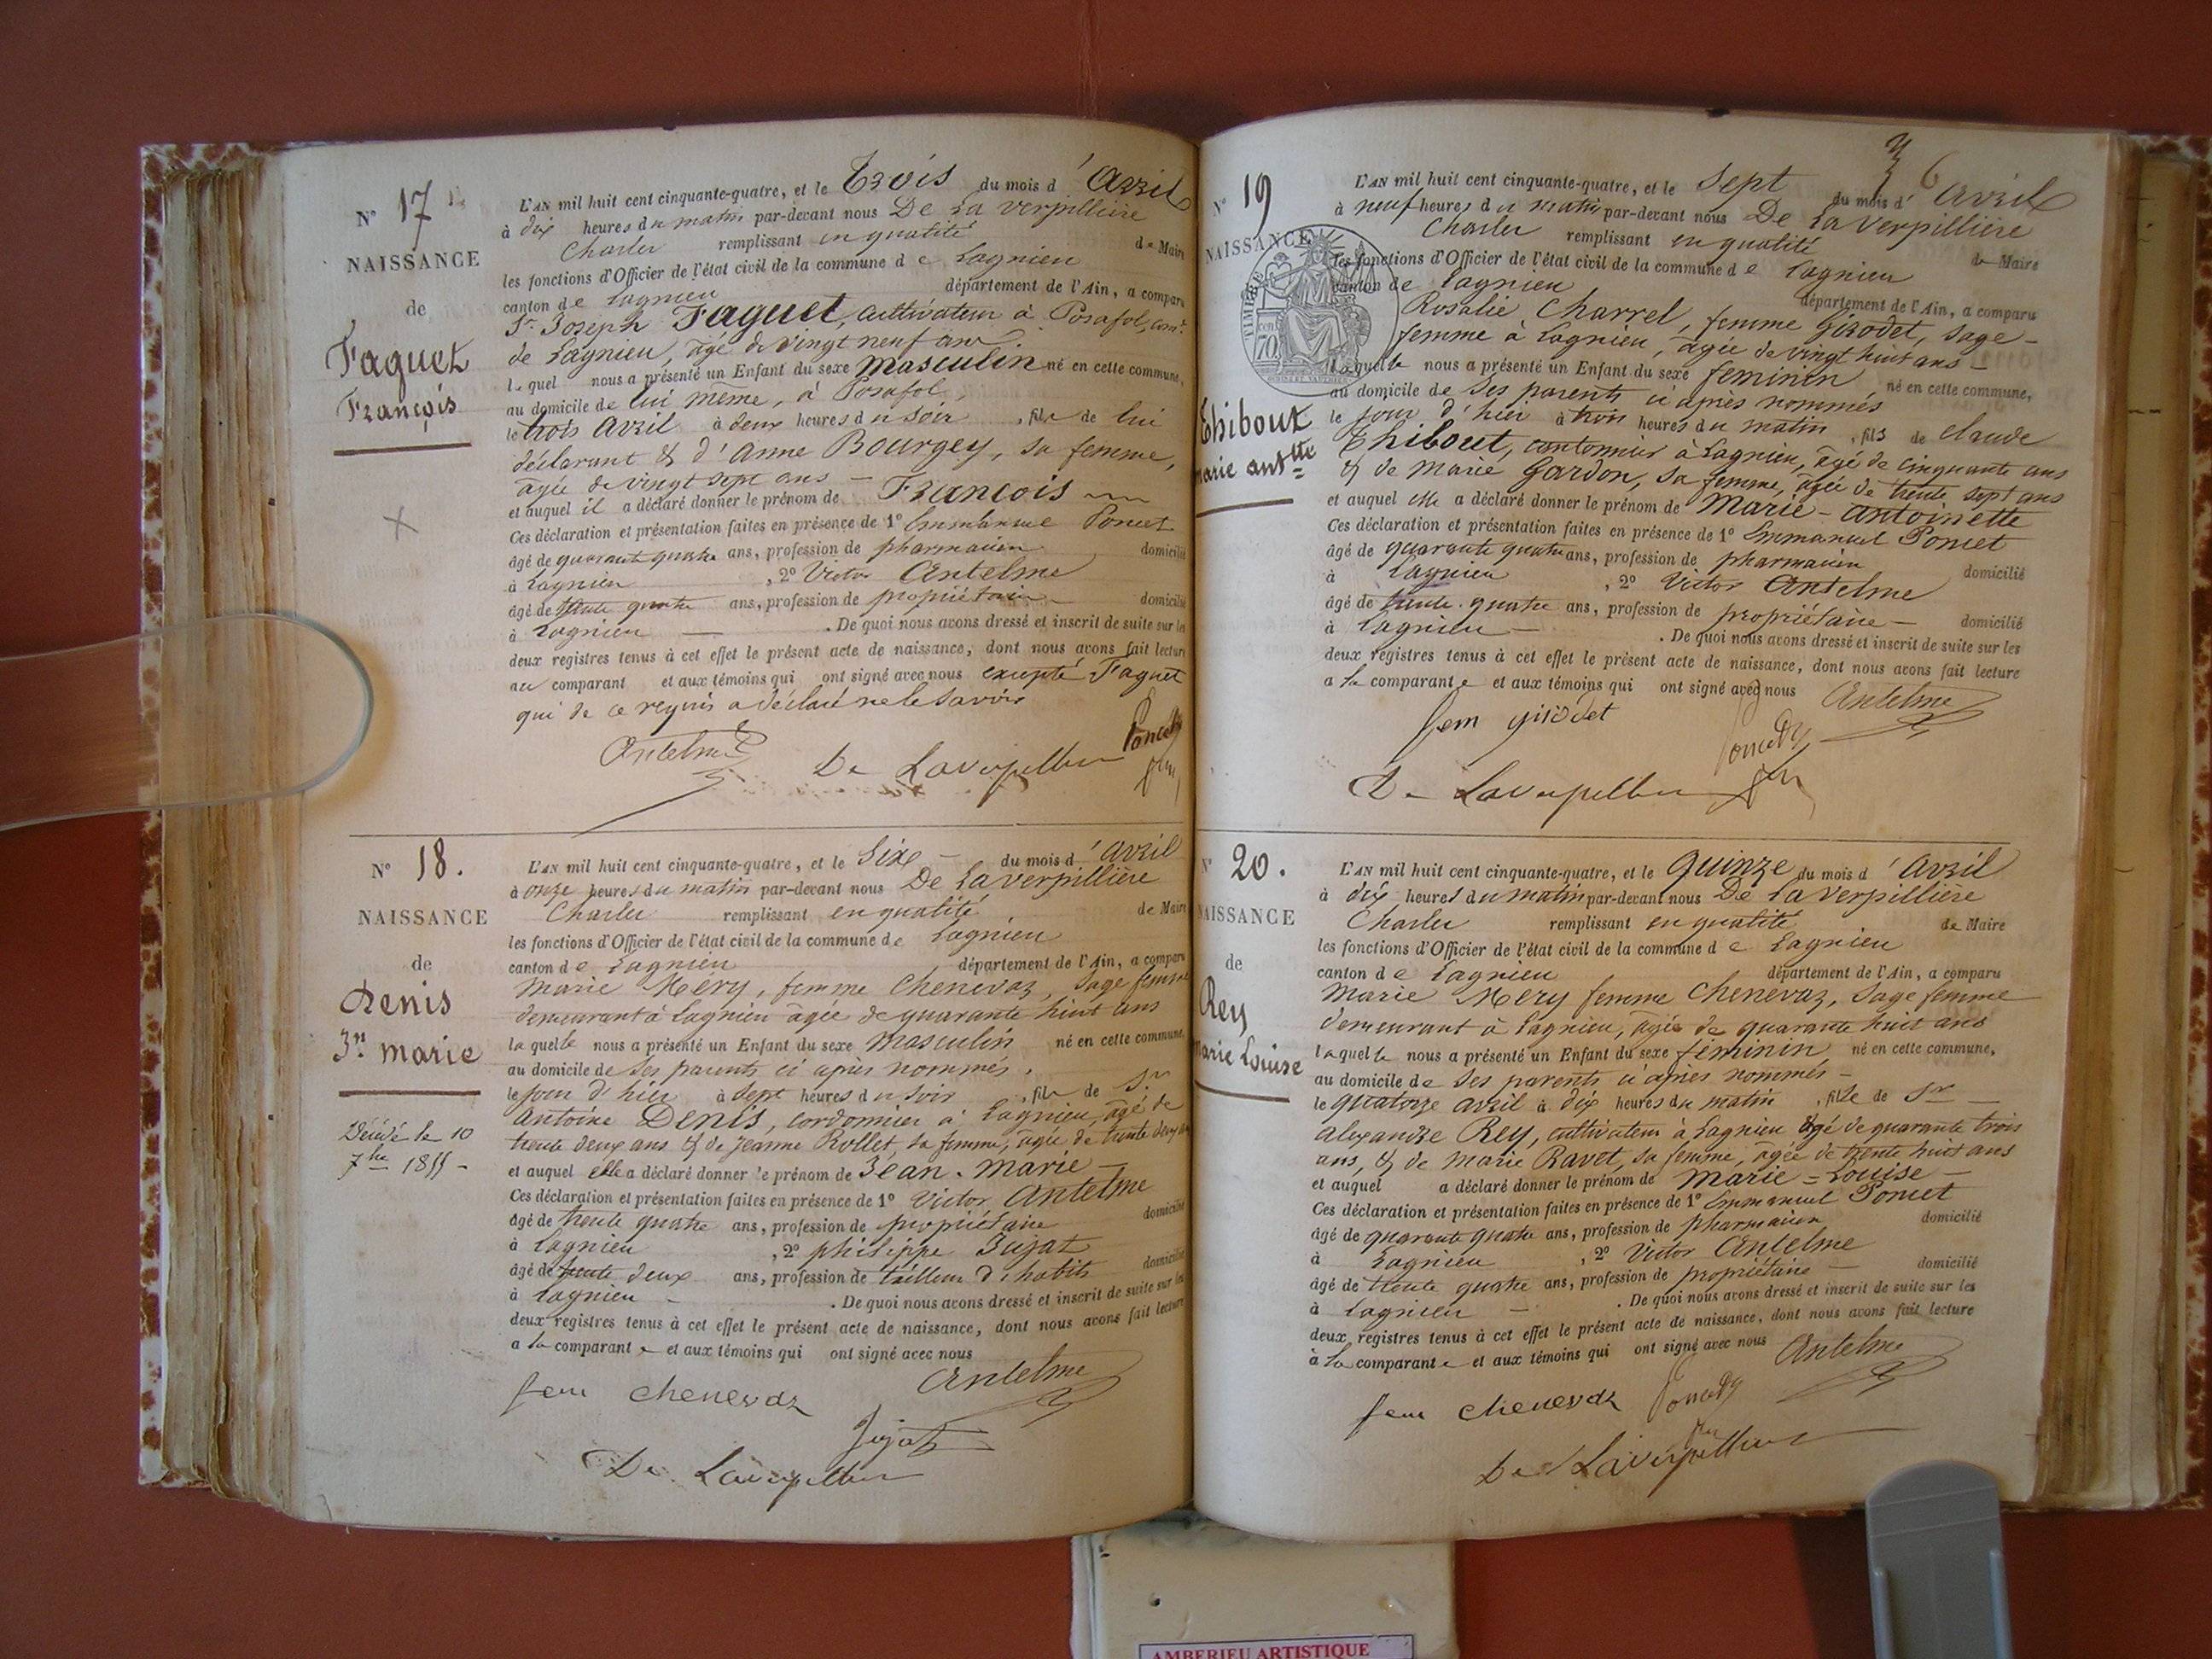 N° 17
NAISSANCE
de
Faguet
François
L'AN mil huit cent cinquante-quatre, et le Trois du mois d'Avril
à dix heures du matin par-devant nous De La verpillière
Charles remplissant en qualité de Maire
les fonctions d'Officier de l'état civil de la commune de Lagnieu
canton de Lagnieu département de l'Ain, a comparu
Sr Joseph Faguet, cultivateur à Posafol, comne
de Lagnieu, âgé de vingt neuf ans.
lequel nous a présenté un Enfant du sexe masculin né en cette commune,
au domicile de lui même, à Posafol,
le trois Avril à deux heures du soir, fils de lui
déclarant & d'Anne Bourgey, sa femme,
âgée de vingt sept ans —
et auquel il a déclaré donner le prénom de François
Ces déclaration et présentation faites en présence de 1° Emmanuel Poncet
âgé de quarante quatre ans, profession de pharmacien domicilié
à Lagnieu, 2° Victor Antelme
âgé de trente quatre ans, profession de propriétaire domicilié
à Lagnieu — . De quoi nous avons dressé et inscrit de suite sur les
deux registres tenus à cet effet le présent acte de naissance, dont nous avons fait lecture
au comparant et aux témoins qui ont signé avec nous excepté Faguet
qui de ce requis a déclaré ne le savoir
Antelme Poncet
De Laverpillier
N° 18.
NAISSANCE
de
Denis
Jn marie
Décédé le 10
7bre 1855 -
L'AN mil huit cent cinquante-quatre, et le Six — du mois d'Avril
à onze heures du matin par-devant nous De La verpillière
Charles remplissant en qualité de Maire
les fonctions d'Officier de l'état civil de la commune de Lagnieu
canton de Lagnieu département de l'Ain, a comparu
Marie Mery, femme Chenevaz, sage femme
demeurant à Lagnieu âgée de quarante huit ans
laquelle nous a présenté un Enfant du sexe Masculin né en cette commune,
au domicile de ses parents ci après nommés,
le jour d'hier à sept heures du soir, fils de Sr
Antoine Denis, cordonnier à Lagnieu, âgé de
trente deux ans & de Jeanne Rollet, sa femme, âgée de trente deux ans
et auquel elle a déclaré donner le prénom de Jean-Marie —
Ces déclaration et présentation faites en présence de 1° Victor Antelme
âgé de trente quatre ans, profession de propriétaire domicilié
à Lagnieu, 2° philippe Jujat
âgé de trente deux ans, profession de tailleur d'habits domicilié
à Lagnieu — . De quoi nous avons dressé et inscrit de suite sur les
deux registres tenus à cet effet le présent acte de naissance, dont nous avons fait lecture
a la comparante et aux témoins qui ont signé avec nous
Antelme
fem chenevaz
Jujat
De Laverpillier
6
N° 19
NAISSANCE
TIMBRE
70
Thibout
marie anttte
L'AN mil huit cent cinquante-quatre, et le Sept du mois d'Avril
à neuf heures du matin par-devant nous De La Verpillière
Charles remplissant en qualité de Maire
les fonctions d'Officier de l'état civil de la commune de Lagnieu
canton de Lagnieu département de l'Ain, a comparu
Rosalie Charrel, femme Girodet, sage-
femme à Lagnieu, âgée de vingt huit ans —
laquelle nous a présenté un Enfant du sexe feminin né en cette commune,
au domicile de ses parents ci après nommés
le jour d'hier à trois heures du matin, fils de Claude
Thibout, cantonnier à Lagnieu, âgé de cinquante ans
& de Marie Gardon, sa femme, âgée de trente sept ans
et auquel elle a déclaré donner le prénom de Marie-Antoinette
Ces déclaration et présentation faites en présence de 1° Emmanuel Poncet
âgé de quarante quatre ans, profession de pharmacien domicilié
à Lagnieu, 2° Victor Antelme
âgé de trente-quatre ans, profession de propriétaire — domicilié
à Lagnieu — . De quoi nous avons dressé et inscrit de suite sur les
deux registres tenus à cet effet le présent acte de naissance, dont nous avons fait lecture
a la comparante et aux témoins qui ont signé avec nous Antelme
fem girodet Poncet
De Laverpillier
N° 20.
NAISSANCE
de
Rey
marie Louise
L'AN mil huit cent cinquante-quatre, et le Quinze du mois d'Avril
à dix heures du matin par-devant nous De La verpillière
Charles remplissant en qualité de Maire
les fonctions d'Officier de l'état civil de la commune de Lagnieu
canton de Lagnieu département de l'Ain, a comparu
Marie Mery femme Chenevaz, sage femme
demeurant à Lagnieu, âgée de quarante huit ans
laquelle nous a présenté un Enfant du sexe féminin né en cette commune,
au domicile de ses parents ci après nommés —
le quatorze avril à dix heures du matin, fille de Sr —
Alexandre Rey, cultivateur à Lagnieu âgé de quarante trois
ans, & de Marie Ravet, sa femme, âgée de trente huit ans
et auquel a déclaré donner le prénom de Marie=Louise —
Ces déclaration et présentation faites en présence de 1° Emmanuel Poncet
âgé de quarante quatre ans, profession de pharmacien domicilié
à Lagnieu, 2° Victor Antelme
âgé de trente quatre ans, profession de propriétaire — domicilié
à Lagnieu — . De quoi nous avons dressé et inscrit de suite sur les
deux registres tenus à cet effet le présent acte de naissance, dont nous avons fait lecture
à la comparante et aux témoins qui ont signé avec nous Antelme
fem chenevaz Poncet
De Laverpillier
AMBERIEU ARTISTIQUE